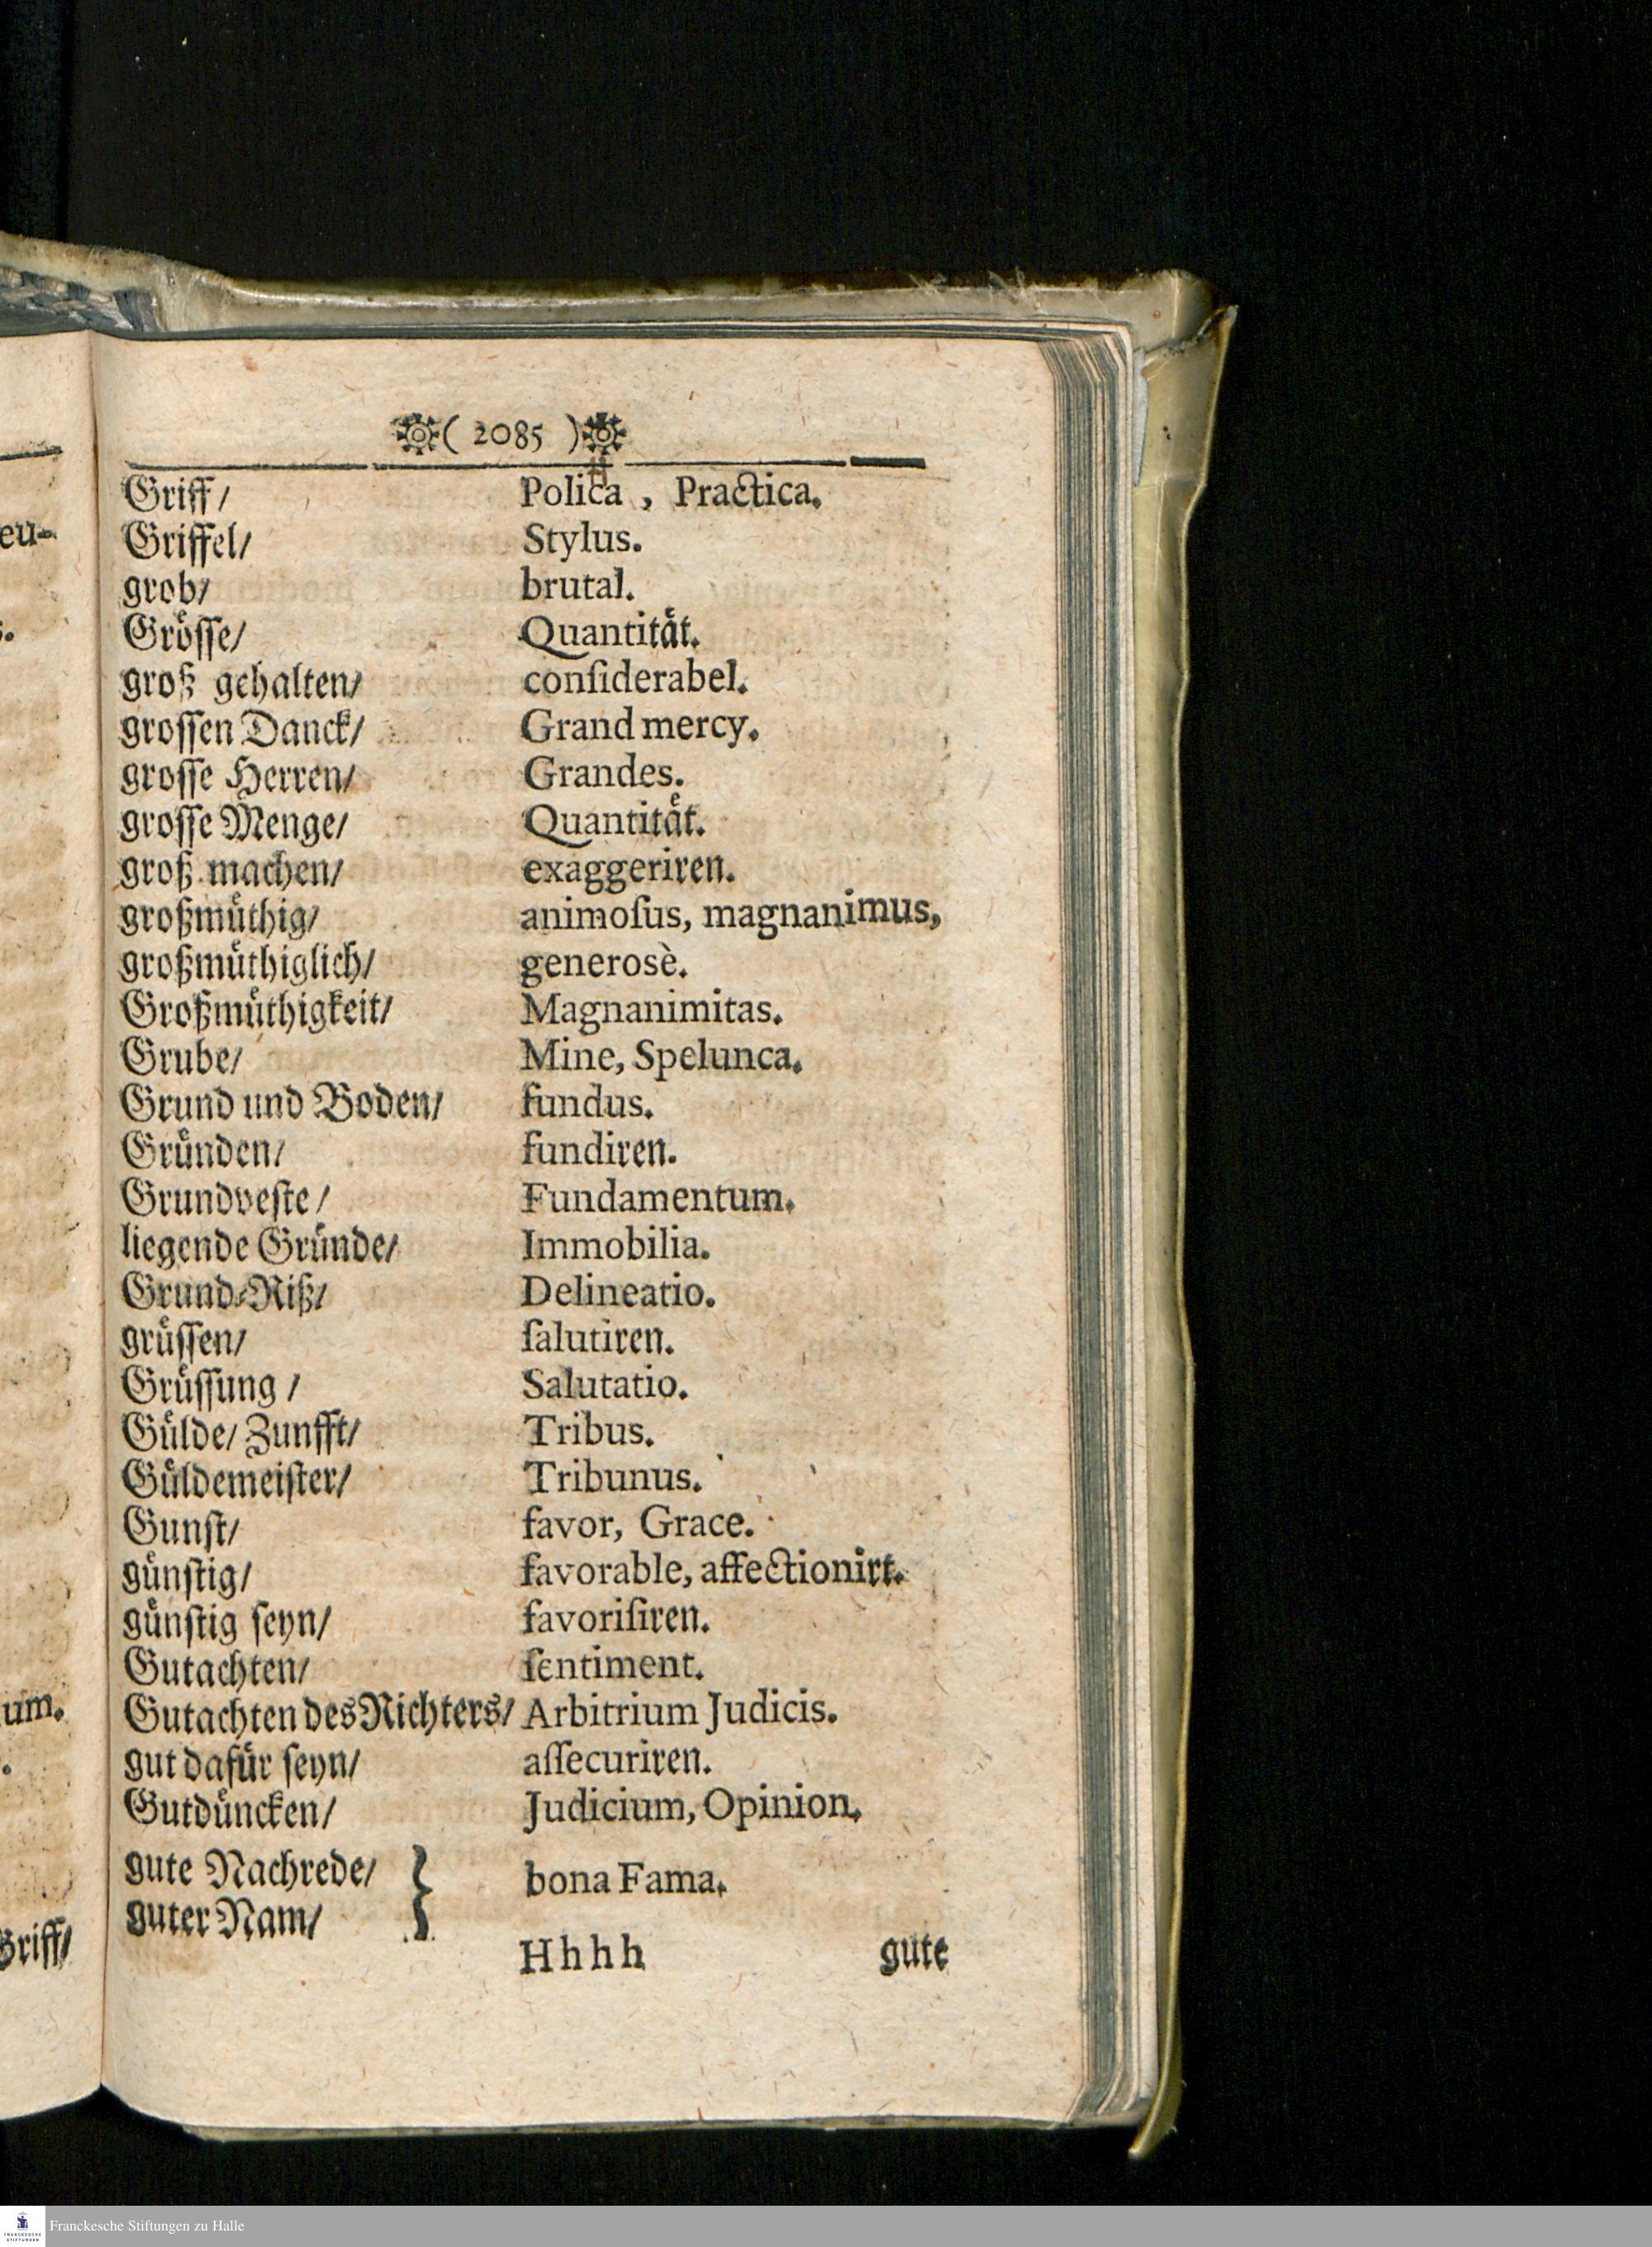 ( 2085 )
Griff/ Polica, Practica.
Griffel/ Stylus.
grob/ brutal.
Gröſſe/ Quantität.
groß gehalten/ conſiderabel.
groſſen Danck/ Grand mercy.
groſſe Herren/ Grandes.
groſſe Menge/ Quantität.
groß machen/ exaggeriren.
großmüthig/ animoſus, magnanimus,
großmüthiglich/ generosè.
Großmüthigkeit/ Magnanimitas.
Grube/ Mine, Spelunca.
Grund und Boden/ fundus.
Gründen/ fundiren.
Grundveſte/ Fundamentum.
liegende Gründe/ Immobilia.
Grund-Riß/ Delineatio.
grüſſen/ ſalutiren.
Grüſſung/ Salutatio.
Gülde/ Zunfft/ Tribus.
Güldemeiſter/ Tribunus.
Gunſt/ favor, Grace.
günſtig/ favorable, affectionirt.
günſtig ſeyn/ favoriſiren.
Gutachten/ ſentiment.
Gutachten des Richters/ Arbitrium Judicis.
gut dafür ſeyn/ aſſecuriren.
Gutdüncken/ Judicium, Opinion.
gute Nachrede/ } bona Fama.
guter Nam/
Hhhh gute
eu-
um.
Griff/
Franckesche Stiftungen zu Halle